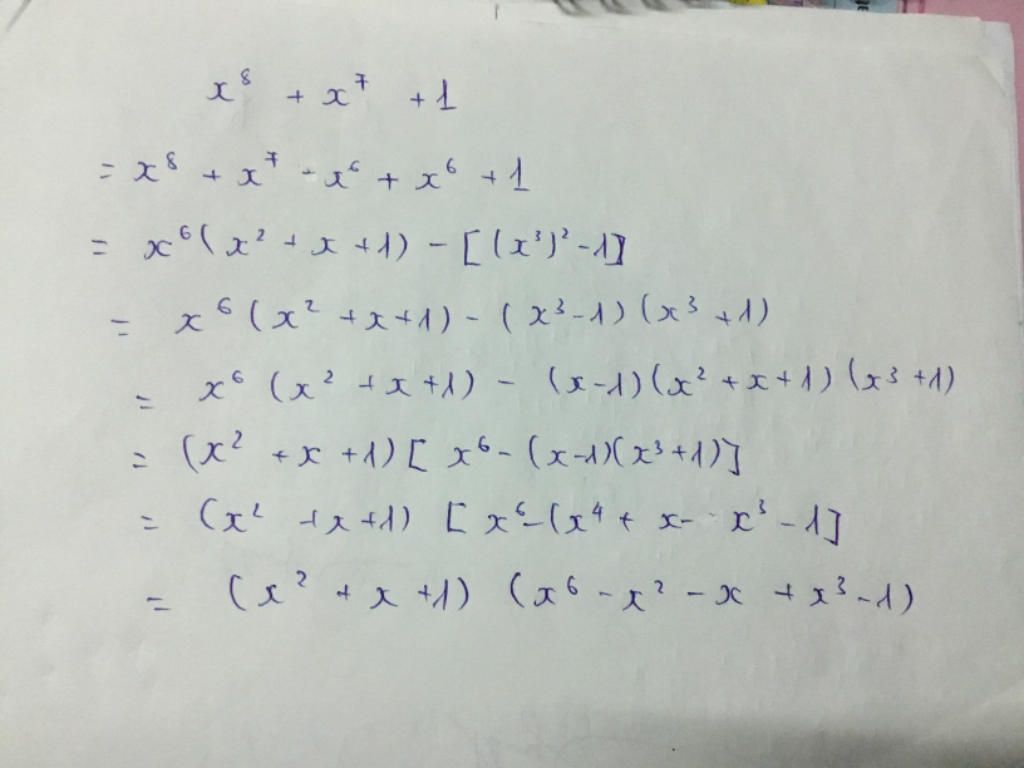 x⁸ + x⁷ + 1
= x⁸ + x⁷ - x⁶ + x⁶ + 1
= x⁶(x² + x + 1) - [(x³)² - 1]
= x⁶(x² + x + 1) - (x³ - 1)(x³ + 1)
= x⁶(x² + x + 1) - (x - 1)(x² + x + 1)(x³ + 1)
= (x² + x + 1)[x⁶ - (x - 1)(x³ + 1)]
= (x² + x + 1)[x⁶ - (x⁴ + x - x³ - 1]
= (x² + x + 1)(x⁶ - x² - x + x³ - 1)